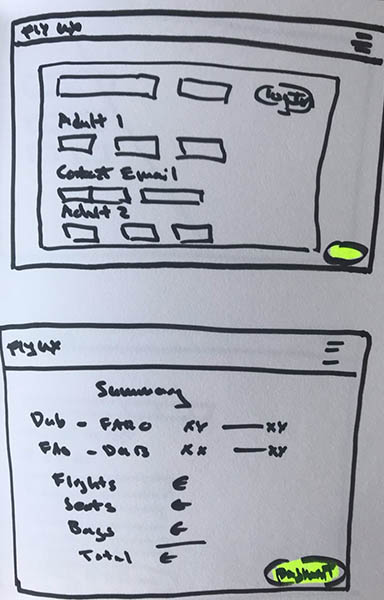 Fly UX
Log In
Adult 1
Contact Email
Adult 2
Fly UX
Summary
Dub - FARO XY — XY
FAO - DUB XX — XY
Flights €
Seats €
Bags €
Total €
Payment